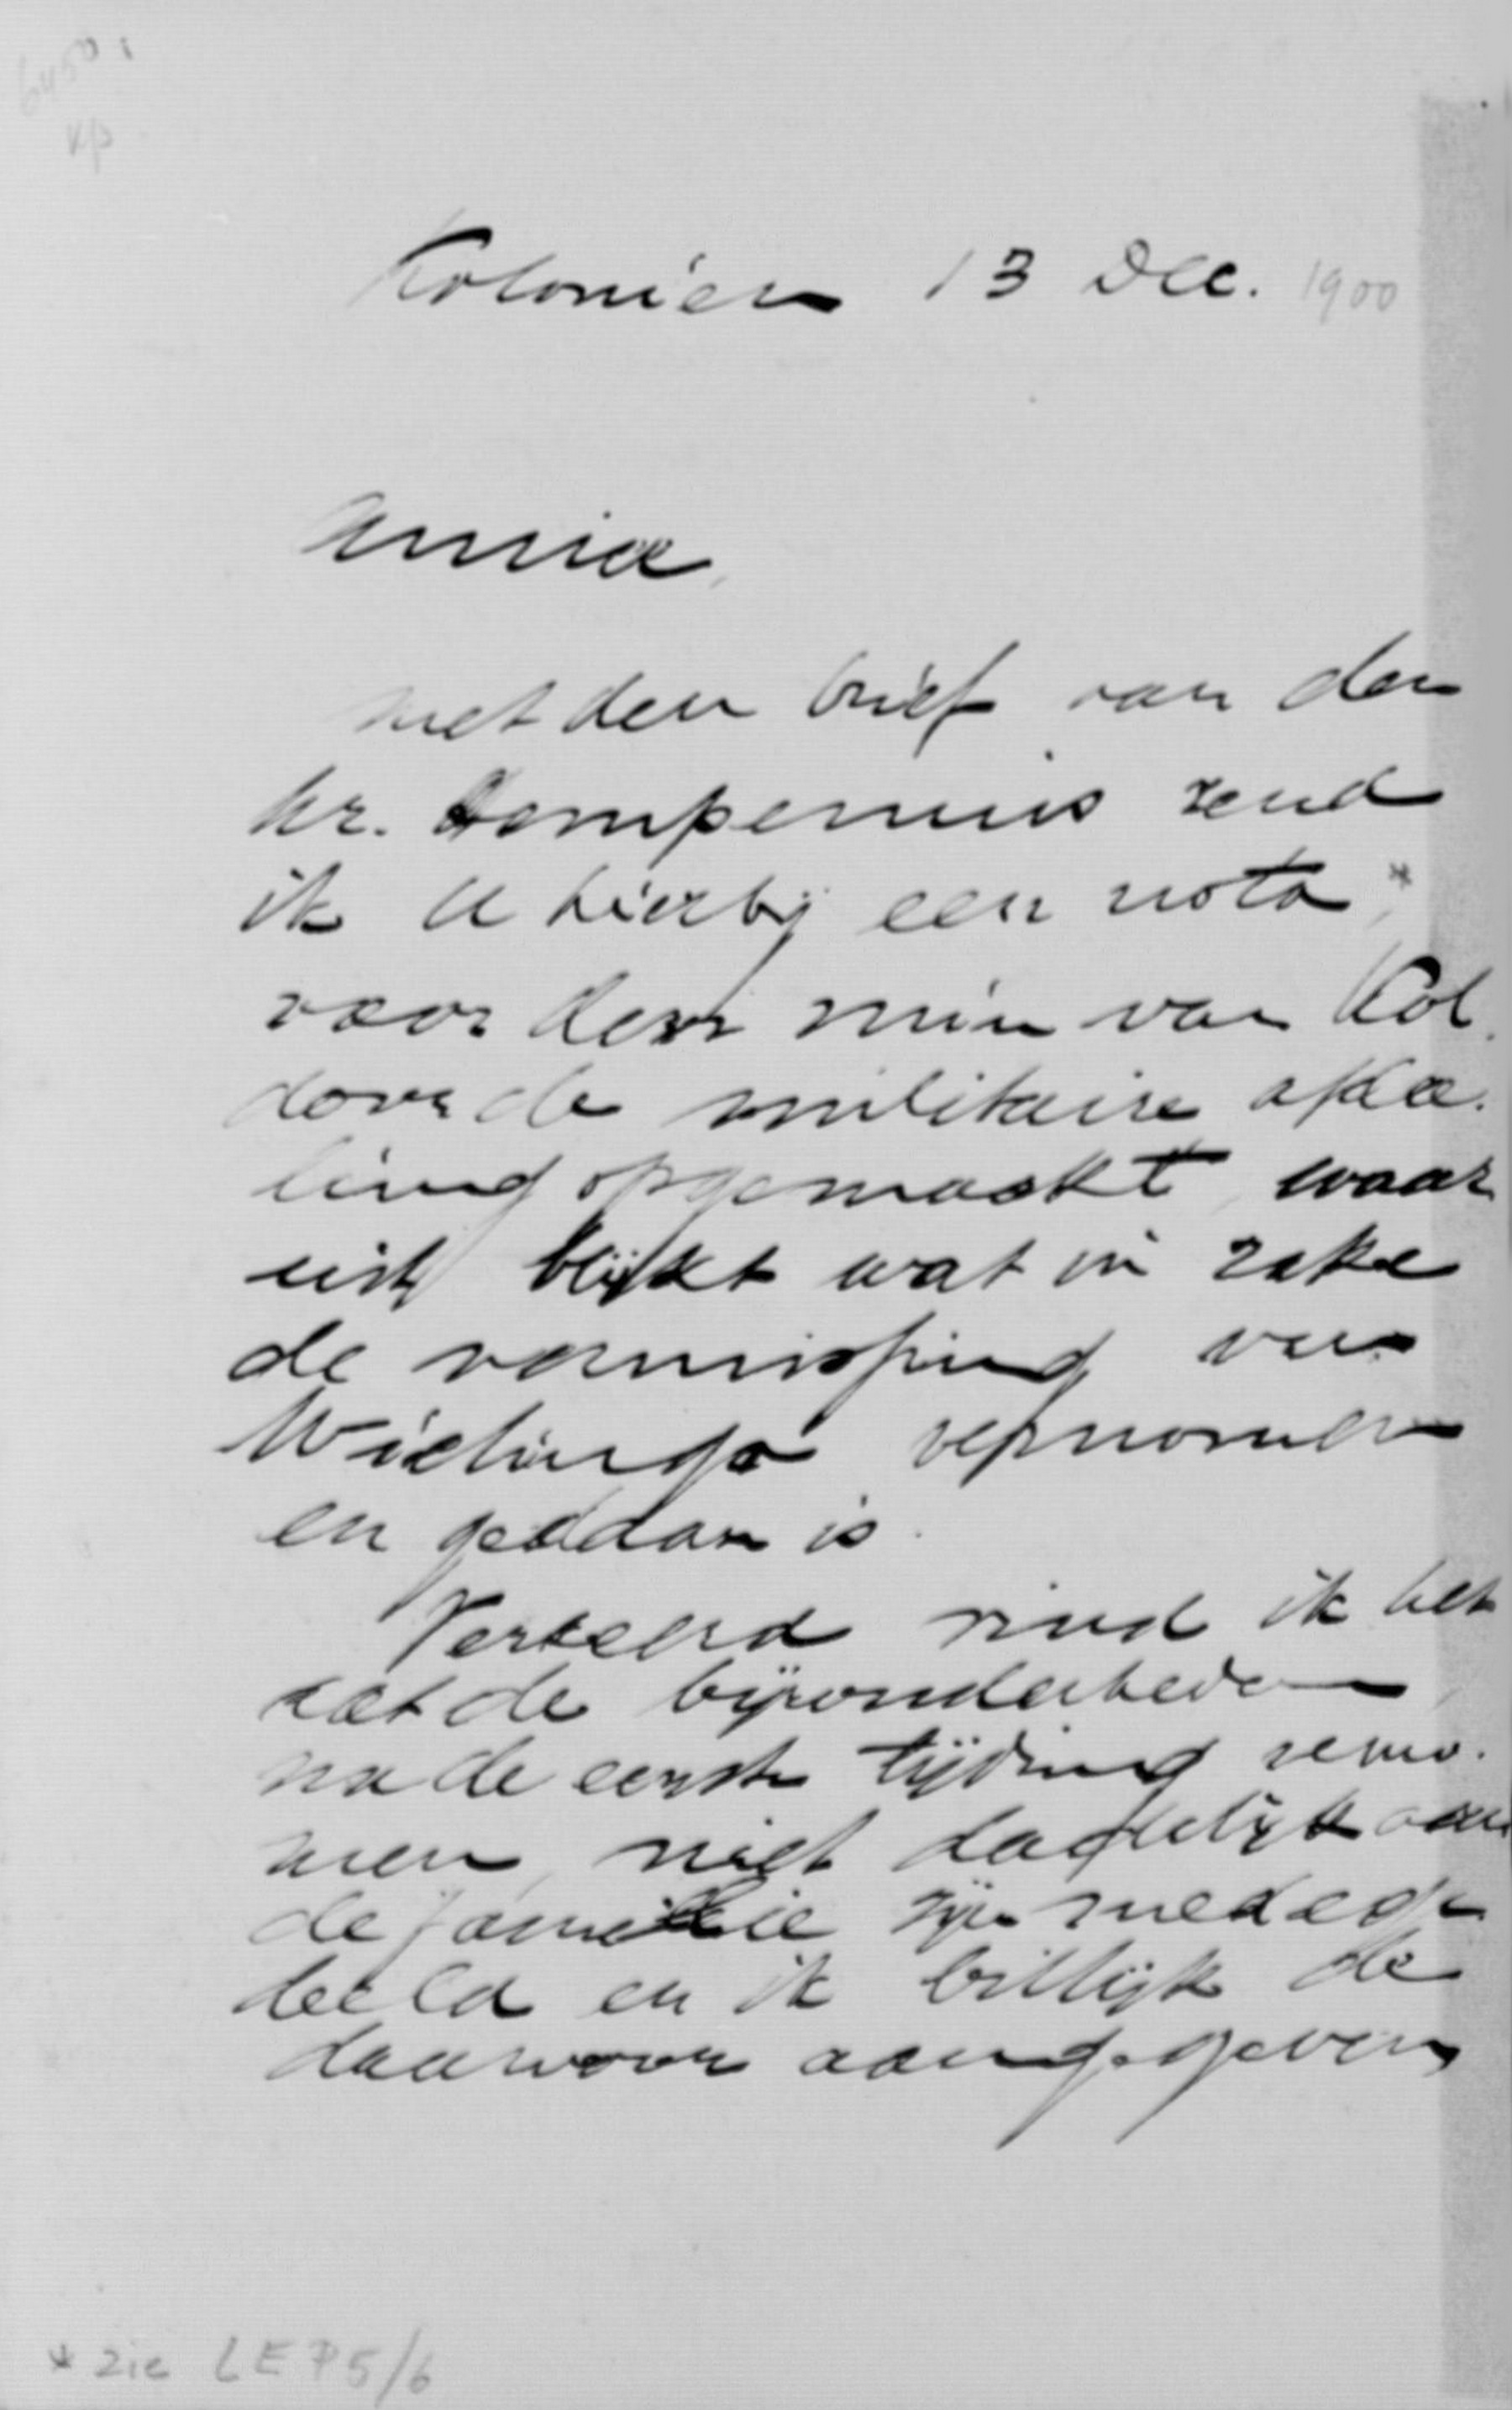 6450i
Kp
Koloniën 13 Dec. 1900
Amice,
met den brief van den
hr. Kempenius zend
ik U hierbij een nota *,
voor den min van Kol.
door de militaire afdee.
ling opgemaakt, waar
uit blijkt wat in zake
de vermissing van
Wielinga vernomen
en gedaan is.
Verkeerd vind ik het
dat de bijzonderheden,
na de eerste tijding verno.
men, niet dadelijk aan
de familie zijn medege
deeld en ik billijk de
daarvoor aangegeven
* zie LEP5/6